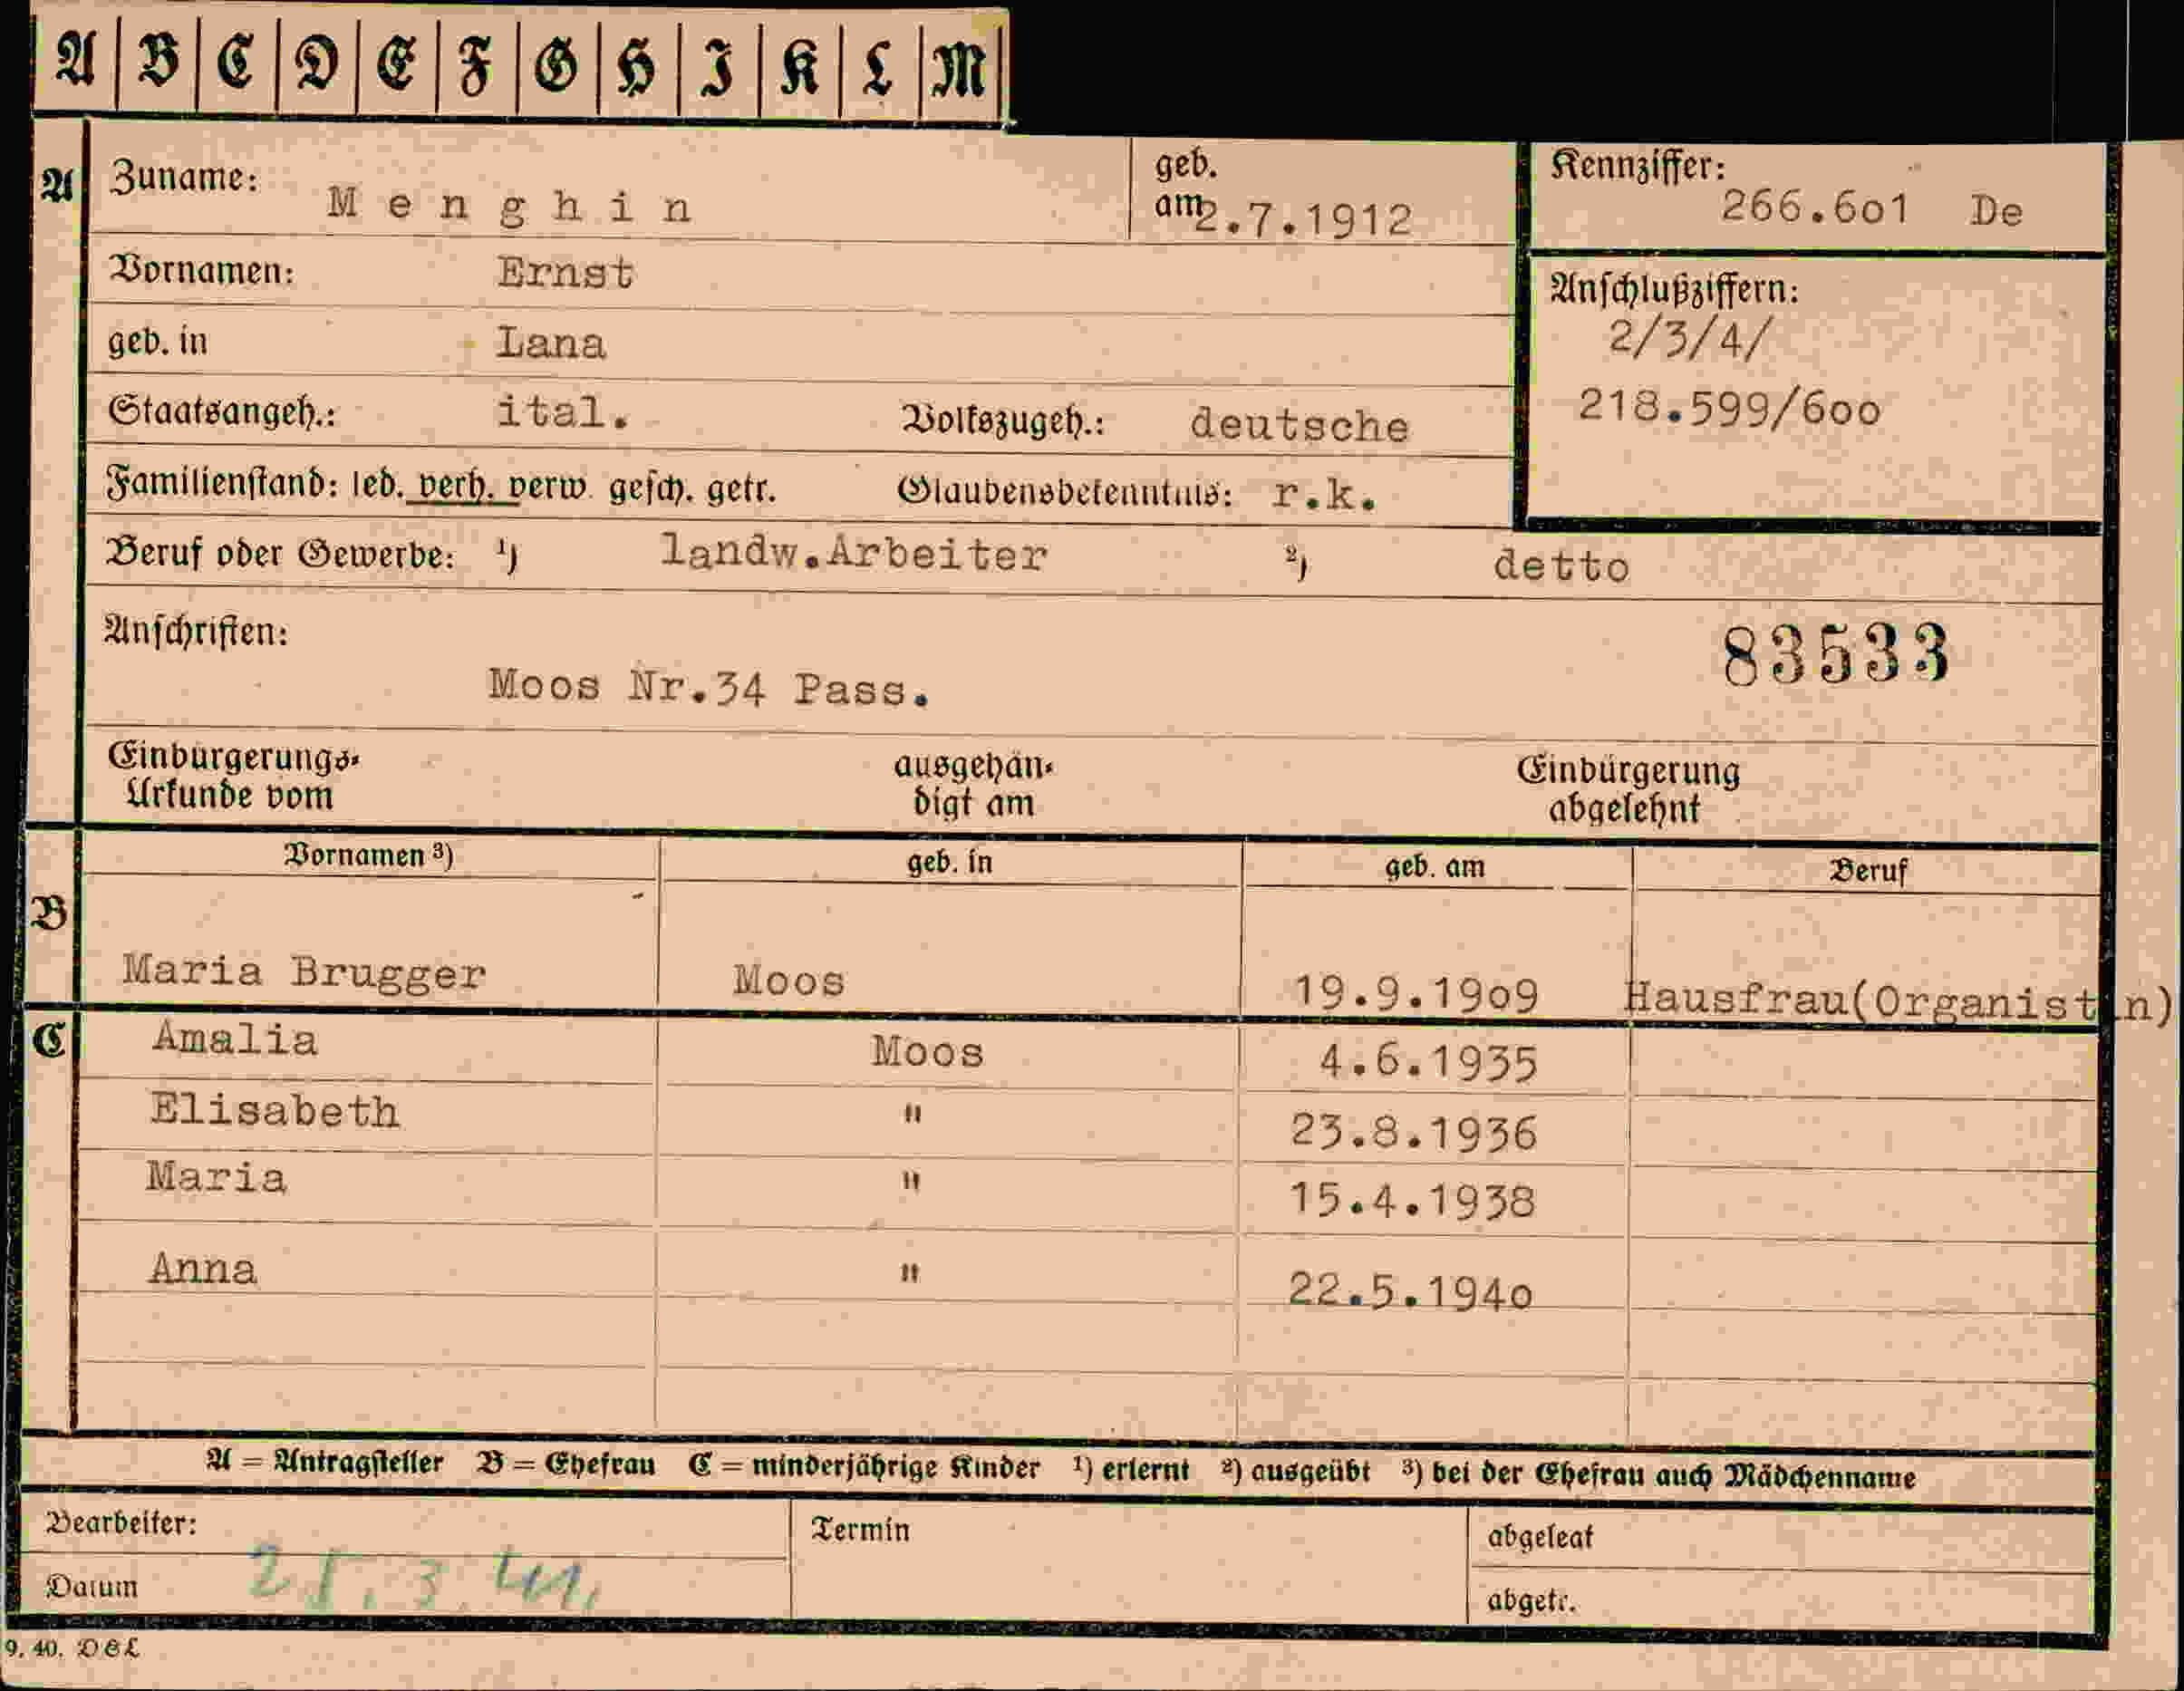 A B C D E F G H I K L M
A Zuname: Menghin geb. am 2.7.1912 Kennziffer: 266.6o1 De
Vornamen: Ernst
Anschlußziffern:
geb. in Lana 2/3/4/
Staatsangeh.: ital. Volkszugeh.: deutsche 218.599/6oo
Familienstand: led. verh. verw. gesch. getr. Glaubensbekenntnis: r.k.
Beruf oder Gewerbe: ¹) landw.Arbeiter ²) detto
Anschriften: 83533
Moos Nr.34 Pass.
Einbürgerungs- ausgehän- Einbürgerung
Urkunde vom digt am abgelehnt
Vornamen ³) geb. in geb. am Beruf
B
Maria Brugger Moos 19.9.19o9 Hausfrau(Organistin)
C Amalia Moos 4.6.1935
Elisabeth " 23.8.1936
Maria " 15.4.1938
Anna " 22.5.194o
A = Antragsteller B = Ehefrau C = minderjährige Kinder ¹) erlernt ²) ausgeübt ³) bei der Ehefrau auch Mädchenname
Bearbeiter: Termin abgelegt
Datum 3.41. abgetr.
9. 40. DEL